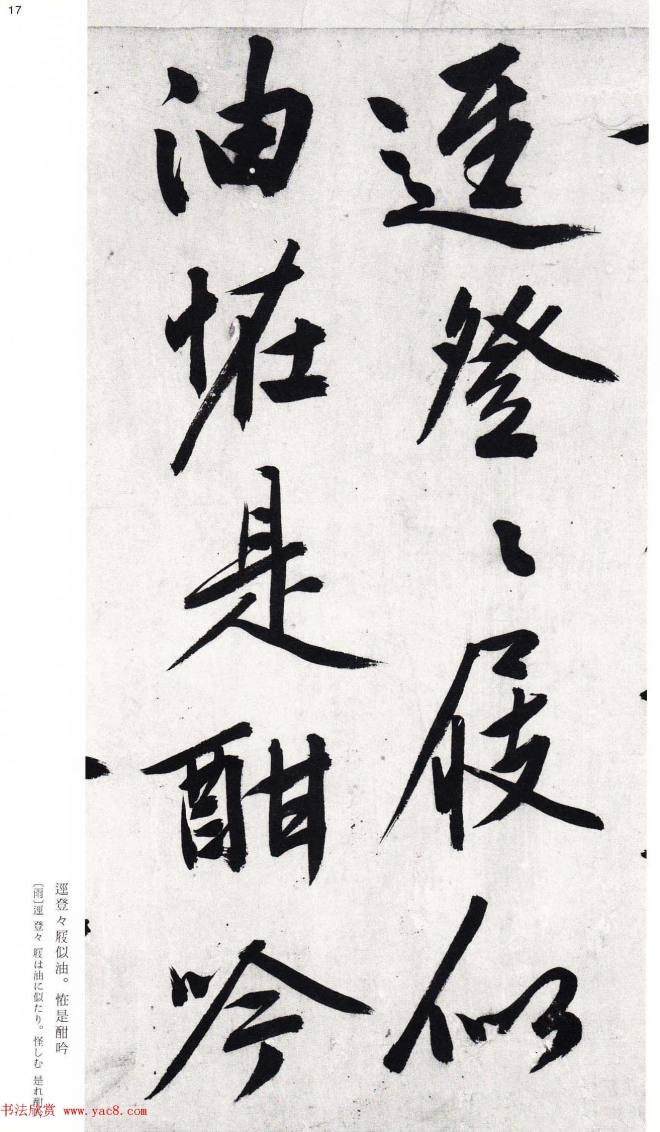 17
逕登〻屐似
油恠是酣吟
逕登々屐似油。恠是酣吟
〔雨〕逕 登々 屐は油に似たり。怪しむ 是れ酣
书法欣赏 www.yac8.com